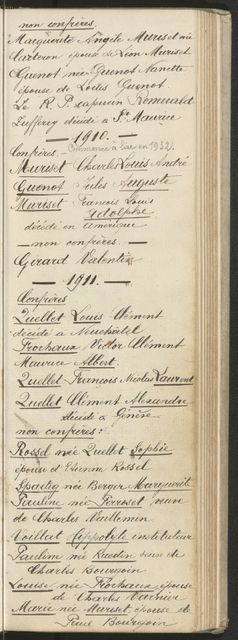 non confrères.
Marguerite Angèle Muriset née
Carteron épouse de Léon Muriset
Guenot née Guenot Nanette
épouse de Louis Guenot
Le R. P. capucin Romuald
Jufferey décédé à St Maurice
— 1910. —
Confrères. (Commencé à lire en 1932).
Muriset Charles Louis André
Guenot Jules Auguste
Muriset François Louis
Adolphe
décédé en Amérique
— non confrères. —
Girard Valentin
— 1911. —
Confrères
Quellet Louis Clément
décédé à Neuchâtel
Frochaux Victor Clément
Maurice Albert.
Quellet François Nicolas Laurent
Quellet Clément Alexandre
décédé à Genève
non confrères:
Rossel née Quellet Sophie
épouse d'Etienne Rossel
née Berger Marguerite
Pauline née Perroset veuve
de Charles Vuillemin
Voillat Hippolyte instituteur
Pauline née Ruedin veuve de
Charles Bourgoin
Louise née Frochaux épouse
de Charles Varnier
Marie née Muriset épouse de
Paul Bourgoin